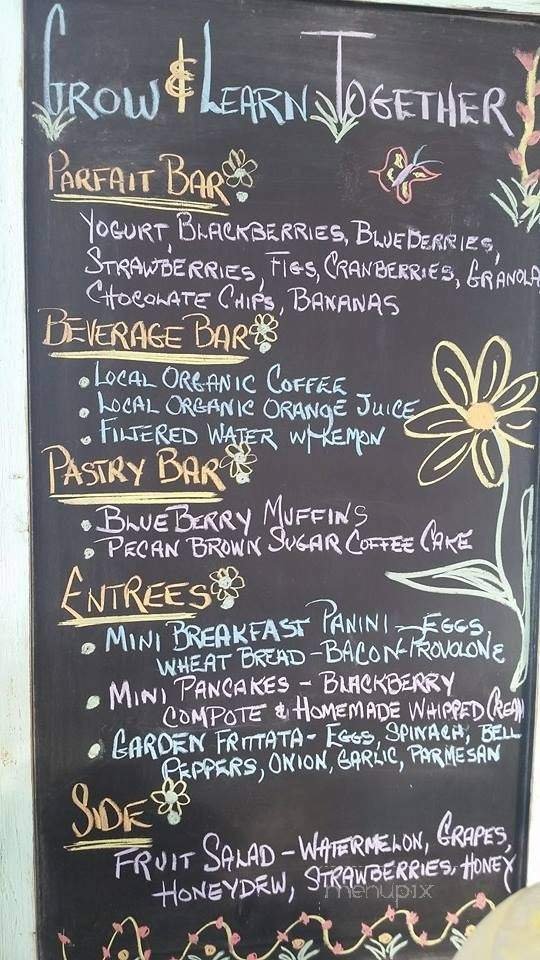 GROW & LEARN TOGETHER
PARFAIT BAR
YOGURT, BLACKBERRIES, BLUEBERRIES,
STRAWBERRIES, FIGS, CRANBERRIES, GRANOLA
CHOCOLATE CHIPS, BANANAS
BEVERAGE BAR
• LOCAL ORGANIC COFFEE
• LOCAL ORGANIC ORANGE JUICE
• FILTERED WATER W/ LEMON
PASTRY BAR
• BLUEBERRY MUFFINS
• PECAN BROWN SUGAR COFFEE CAKE
ENTREES
• MINI BREAKFAST PANINI - EGGS,
WHEAT BREAD - BACON - PROVOLONE
• MINI PANCAKES - BLACKBERRY
COMPOTE & HOMEMADE WHIPPED CREAM
• GARDEN FRITTATA - EGGS, SPINACH, BELL
PEPPERS, ONION, GARLIC, PARMESAN
SIDE
FRUIT SALAD - WATERMELON, GRAPES,
HONEYDEW, STRAWBERRIES, HONEY
menupix